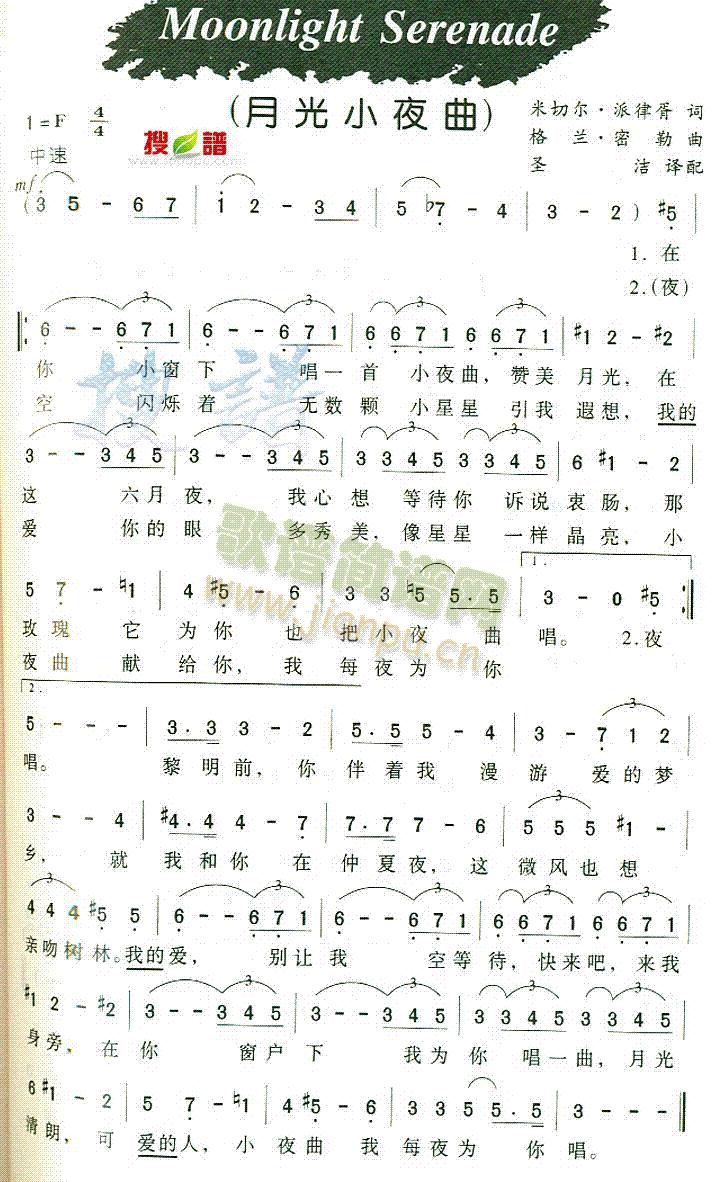 Moonlight Serenade
(月光小夜曲)
1=F 4/4
中速
米切尔·派律胥 词
格兰·密勒 曲
圣洁 译配
搜谱
mf
( 3 5 - 6 7 | i 2 - 3 4 | 5 ♭7 - 4 | 3 - 2 ) #5 |
1. 在
2.(夜)
‖: 6 - - 6 7 1 | 6 - - 6 7 1 | 6 6 7 1 6 6 7 1 | #1 2 - #2 |
你 小窗下 唱一首 小夜曲, 赞美 月光, 在
空 闪烁着 无数颗 小星星 引我 遐想, 我的
3 - - 3 4 5 | 3 - - 3 4 5 | 3 3 4 5 3 3 4 5 | 6 #1 - 2 |
这 六月夜, 我心想 等待你 诉说衷肠, 那
爱 你的眼 多秀美, 像星星 一样晶亮, 小
歌谱简谱网
www.jianpu.cn
1.
5 7 - ♮1 | 4 #5 - 6 | 3 3 ♮5 5.5 | 3 - 0 #5 :‖
玫瑰 它为你 也把小夜 曲唱。 2.夜
夜曲 献给你, 我每夜为 你
2.
5 - - - | 3.3 3 - 2 | 5.5 5 - 4 | 3 - 7 1 2 |
唱。 黎明前, 你伴着我 漫游 爱的梦
3 - - 4 | #4.4 4 - 7 | 7.7 7 - 6 | 5 5 5 #1 - |
乡, 就我和你 在仲夏夜, 这微风也想
4 4 4 #5 5 | 6 - - 6 7 1 | 6 - - 6 7 1 | 6 6 7 1 6 6 7 1 |
亲吻树林。我的爱, 别让我 空等待, 快来吧, 来我
#1 2 - #2 | 3 - - 3 4 5 | 3 - - 3 4 5 | 3 3 4 5 3 3 4 5 |
身旁, 在你 窗户下 我为你 唱一曲, 月光
6 #1 - 2 | 5 7 - ♮1 | 4 #5 - 6 | 3 3 5 5.5 | 3 - - - ‖
清朗, 可爱的人, 小夜曲 我每夜为 你唱。